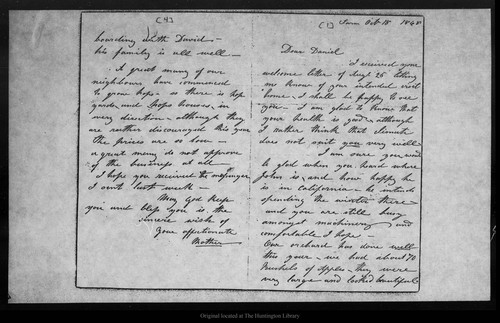 (4)
boarding with David -
his family is all well -
A great many of our
neighbours have commenced
to grow hops - so there is hop
yards and hops houses, in
every direction - although they
are rather discouraged this year
The prices are so low -
a great many do not approve
of the business at all -
I hope you received the
I sent last week -
May God keep
you and bless you is the
sincere wish of
your affectionate
Mother
(1)
Oct 15 18
Dear Daniel
I received your
welcome letter of Sept 25 letting
me know of your intended visit
home - I shall be happy to see
you - I am glad to know that
your health is good, although
I rather think that climate
does not suit you very well
I am sure you would
be glad when you heard where
John is, and how happy he
is in California - he intends
spending the winter there
and you are still busy
amongst machinery and
comfortable I hope -
Our orchard has done well
this year - we had about 70
Bushels of apples, they were
very large and looked beautiful
Original located at The Huntington Library